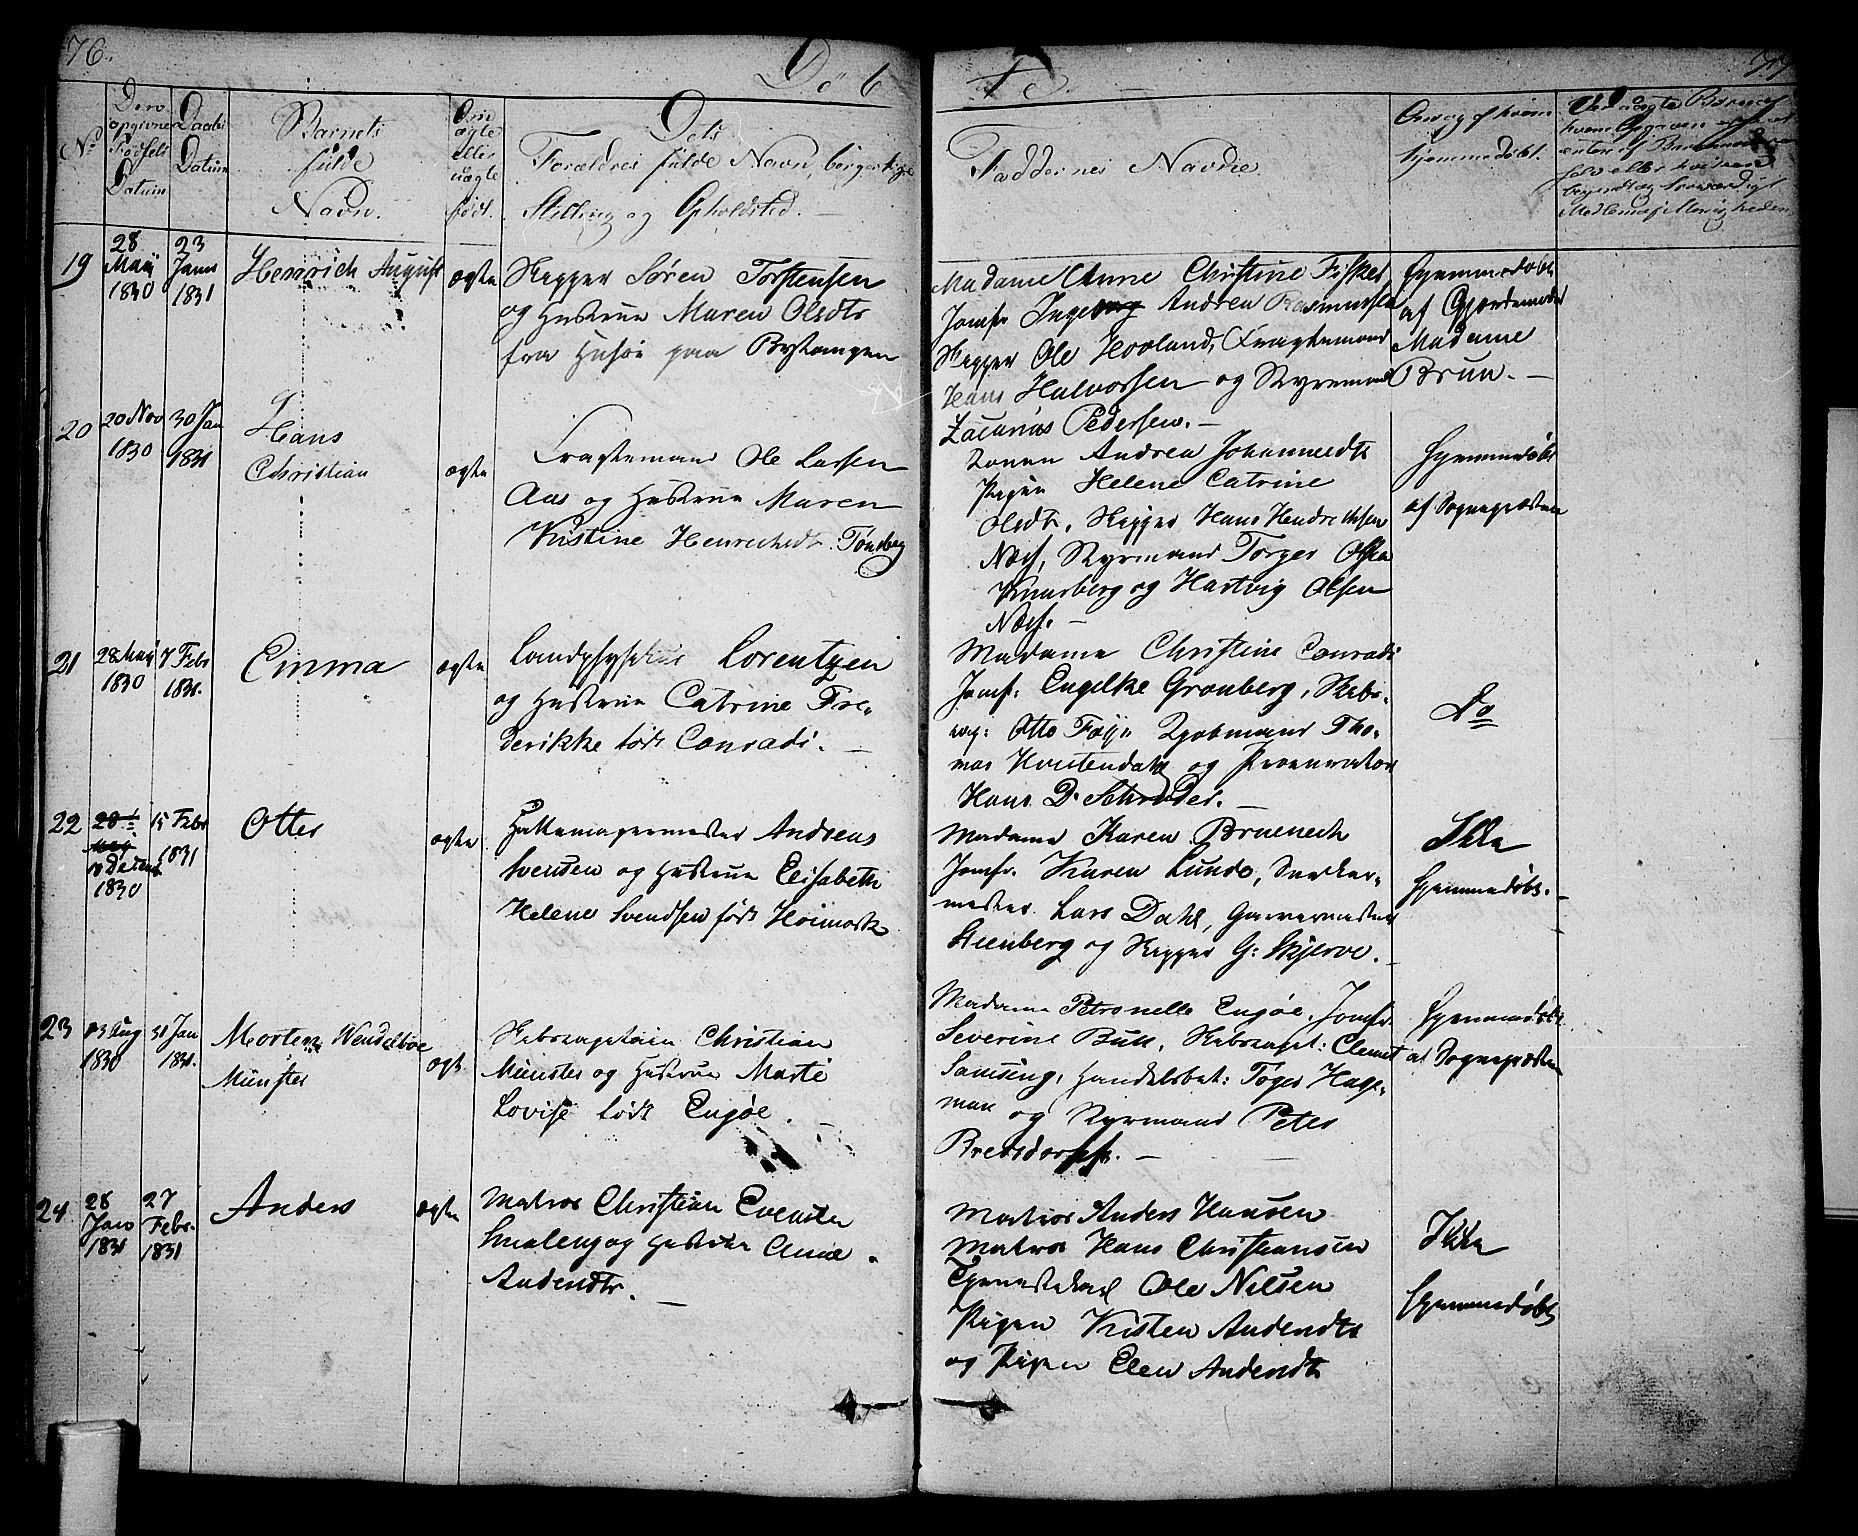 76.
Døb
te.
77
No
Dens
opgivne
Fødsels
Datum
Daabs
Datum
Barnets
fulde
Navn.
Om
ægte
eller
uægte
født.
Dets
Forældres fulde Navn, borgerlige
Stilling og Opholdsted.
Faddernes Navne.
Om og af hvem
hjemmedøbt.
19
28
Maÿ
1830
23
Janu
1831
Henrich August
ægte
Skipper Søren Torstensen
og Hustrue Maren Olsdtr
fra Husøe paa Bystangen
Madame Anne Christine Fisker
Jomfr Ingeborg Andrea Rasmussen
Skipper Ole Hovland, Fragtemand
Hans Halvorssen og Styrmand
Zacarias Pedersen.
Hjemmedøbt
af Gjordemoder
Madame
Brun.
20
20 Nov
1830
30 Jan
1831
Hans
Christian
ægte
Fragtemand Ole Larsen
Aas og Hustrue Maren
Kristine Henrichsdtr Tønsberg
Konen Andrea Johannesdtr
Pigen Helene Catrine
Olsdtr, Skipper Hans Hendrichsen
Næss, Styrmand Torger Olsen
Knarberg og Hartvig Olsen
Næss.
Hjemmedøbt
af Sognepræsten
21
28 Maÿ
1830
7 Febr
1831.
Emma
ægte
Landphysikus Lorentzen
og Hustrue Catrine Fre-
derikke født Conradi.
Madame Christine Conradi
Jomf: Engelke Grønberg, Skibs-
cap: Otto Føÿn Kjøbmand Tho-
mas Hvistendahl og Procurator
Hans D. Schrøder.
Do
22
28de
Maÿ
10 Decemb
1830
15 Febr
1831
Otter
ægte
Hattemagermester Andreas
Svensen og Hustrue Elisabeth
Helene Svendsen født Høimark
Madame Karen Bruenech
Jomfr. Karen Lunde, Snedker-
mester Lars Dahl, Garvermester
Steenberg og Skipper G: Skjerve.
Ikke
hjemmedøbt.
23
23 Aug
1830
31 Jan
1831.
Morten Wendelboe
Münster
ægt.
Skibscapitain Christian
Münster og Hustrue Marte
Lovise født Engøe.
Madame Petronelle Engøe, Jomfr.
Severine Bull, Skibscapt: Clemet
Samsing, Handelsbet: Toger Hage-
man og Styrmand Peter
Bretsdorff.
Hjemmedøbt
af Sognepræsten
24.
28
Janv
1831
27
Febr.
1831
Anders
ægte
Matros Christian Evensen
Smaleng og Hustrue Anne
Andersdtr.
Matros Anders Hansen
Matros Hans Christiansen
Tjenestekarl Ole Nilsen
Pigen Kisten Andersdtr
og Pigen Elen Andersdtr
Ikke
hjemmedøbt